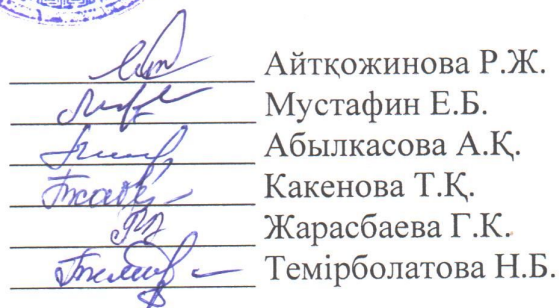 Айтқожинова Р.Ж.
Мустафин Е.Б.
Абылкасова А.Қ.
Какенова Т.Қ.
Жарасбаева Г.К.
Темірболатова Н.Б.